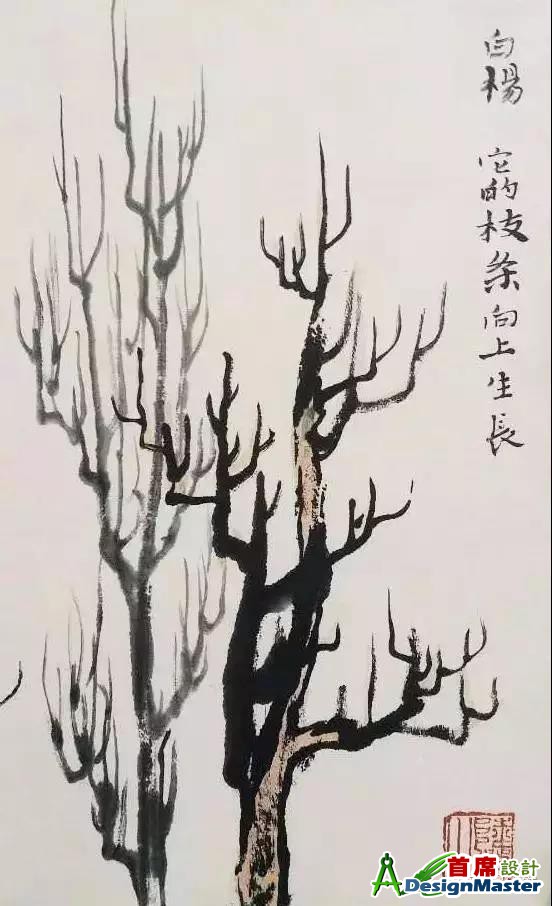 白楊 它的枝条向上生長
首席設計
DesignMaster